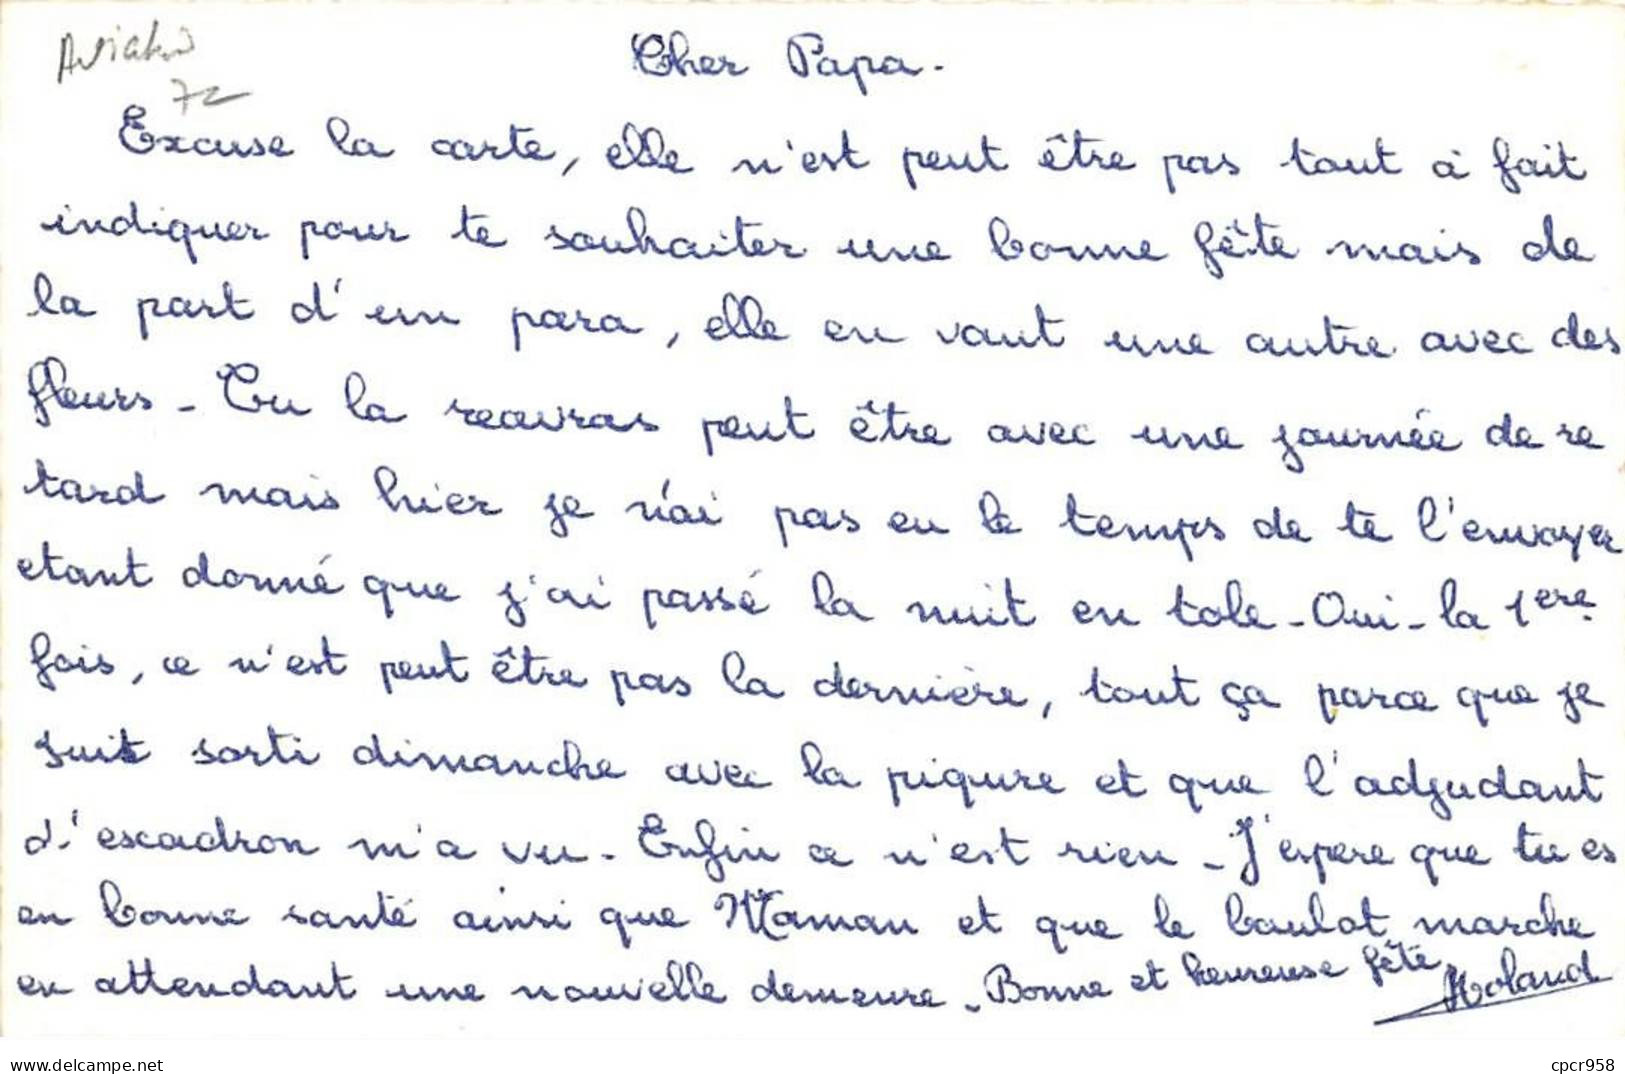 Aviation
72
Cher Papa.
Excuse la carte, elle n'est peut être pas tout à fait
indiquer pour te souhaiter une bonne fête mais de
la part d'un para, elle en vaut une autre avec des
fleurs - Tu la recevras peut être avec une journée de re
tard mais hier je n'ai pas eu le temps de te l'envoyer
etant donné que j'ai passé la nuit en tole - Oui - la 1ere
fois, ce n'est peut être pas la dernière, tout ça parce que je
suis sorti dimanche avec la piqure et que l'adjudant
d'escadron m'a vu. Enfin ce n'est rien - J'espere que tu es
en bonne santé ainsi que Maman et que le boulot marche
en attendant une nouvelle demeure. Bonne et heureuse fête
Roland
delcampe.net
cpcr958